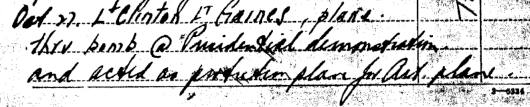 Oct 27. Lt Clinton Lt Gaines, plane.
this bomb @ Presidential demonstration
and acted as protection plane for Art. plane.